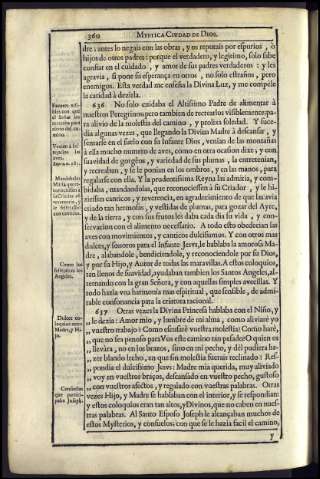 360
MYSTICA CIUDAD DE DIOS.
dre: antes lo negais con las obras, y os reputais por espurios, ò
hijos de otros padres: porque el verdadero, y legitimo, solo sabe
confiar en el cuidado, y amor de sus padres verdaderos: y les
agravia, si pone su esperança en otros, no solo estraños, pero
enemigos. Esta verdad me enseña la Divina Luz, y me compele
la caridad à dezirla.
636 No solo cuidaba el Altissimo Padre de alimentar à
nuestros Peregrinos, pero tambien de recrearlos visiblemente, pa-
ra alivio de la molestia del camino, y prolixa soledad. Y suce-
dia algunas vezes, que llegando la Divina Madre à descansar, y
sentarse en el suelo con su Infante Dios, venian de las montañas
à ella mucho numero de aves, como en otra ocasion dixe; y con
suavidad de gorgeos, y variedad de sus plumas, la entretenian,
y recreaban, y se le ponian en los ombros, y en las manos, para
regalarse con ella. Y la prudentissima Reyna las admitia, y com-
bidaba, mandandolas, que reconociessen à su Criador, y le hi-
ziessen canticos, y reverencia, en agradecimiento de que las avia
criado tan hermosas, y vestidas de plumas, para gozar del Ayre,
y de la tierra, y con sus frutos les daba cada dia su vida, y con-
servacion con el alimento necessario. A todo esto obedecian las
aves con movimientos, y canticos dulcissimos. Y con otros mas
dulces, y sonoros para el Infante JESVS, le hablaba la amorosa Ma-
dre, alabandole, bendiciendole, y reconociendole por su Dios,
y por su Hijo, y Autor de todas las maravillas. A estos coloquios,
tan llenos de suavidad, ayudaban tambien los Santos Angeles, al-
ternando con la gran Señora, y con aquellas simples avecillas. Y
todo hazia vna harmonia mas espiritual, que sensible, de admi-
rable consonancia para la criatura racional.
637 Otras vezes la Divina Princesa hablaba con el Niño, y
„ le dezia: Amor mio, y lumbre de mi alma, como aliviarè yo
„ vuestro trabajo? Como escusarè vuestra molestia? Como harè,
„ que no sea penoso para Vos este camino tan pesado? O quien os
„ llevàra, no en los brazos, sino en mi pecho, y dèl pudiera ha-
„ zer blando lecho, en que sin molestia fuerais reclinado! Res-
„ pondia el dulcissimo JESVS: Madre mia querida, muy aliviado
„ voy en vuestros brazos, descansado en vuestro pecho, gustoso
„ con vuestros afectos, y regalado con vuestras palabras. Otras
vezes Hijo, y Madre se hablaban con el interior, y se respondian;
y estos coloquios eran tan altos, y Divinos, que no caben en nues-
tras palabras. Al Santo Esposo Joseph le alcançaban muchos de
estos Mysterios, y consuelos: con que se le hazia facil el camino,
y
Como los
festejaban los
Angeles.
Dulces co-
loquios entre
Madre, y Hi-
jo.
Consuelos
que partici-
paba Joseph.